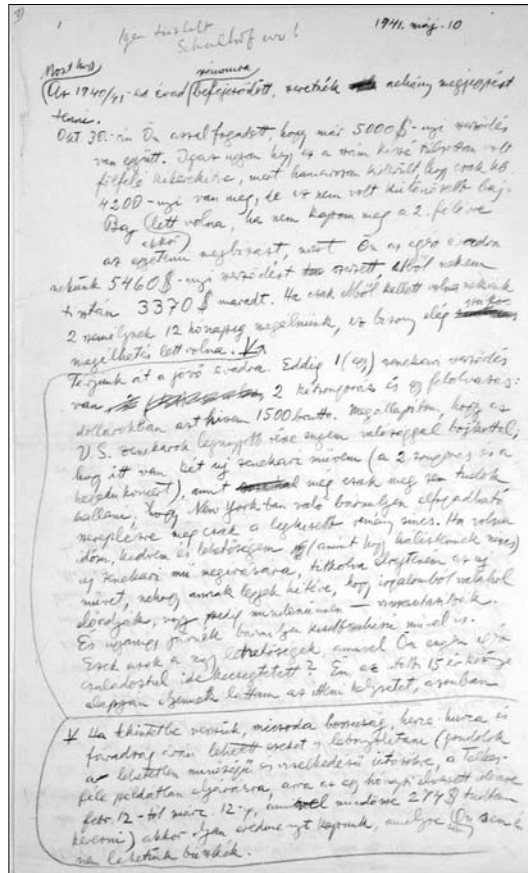 Igen tisztelt
Schulhof úr!
1941. máj. 10
Most hogy számomra
az 1940/41-es évad befejeződött, szeretnék néhány megjegyzést
tenni.
Okt. 30.-án Ön azzal fogadott, hogy már 5000 $-nyi szerződés
van együtt. Igaz ugyan hogy ez a szám kissé túlzottan volt
felfelé kikerekítve, mert hamarosan kiderült hogy csak kb
4200-nyi van meg, de ez nem volt különösebb baj.
Baj lett volna, ha nem kapom meg a 2. félévre
az egyetemi megbízást, mert Ön az egész évadra
nekünk 5460 $-nyi szerződést szerzett, ebből nekem
tisztán 3370 $ maradt. Ha csak ebből kellett volna nekünk
2 személynek 12 hónapig megélnünk, ez bizony elég
megélhetés lett volna.
Térjünk át a jövő évadra. Eddig 1 (egy) zenekari szerződés
van 2 kétzongorás és egy felolvasás:
dollárokban azt hiszem 1500 brutto. Megállapítom, hogy az
U.S. zenekarok legnagyobb része engem valósággal bojkottál;
hogy itt van két új zenekari művem (a 2 zongorás és a
hegedűkoncert), amit még csak meg sem tudok
hallani; hogy New Yorkban való bármilyen elfogadható
szereplésre még csak a legkisebb remény sincs. Ha volna
időm, kedvem és lehetőségem (amint hogy nincs)
új zenekari mű megírására, titkolva elrejteném az új
művet, nehogy annak legyek kitéve, hogy irgalomból valahol
ledarálják, vagy pedig mindenünnen — visszautasítsák.
És ugyanúgy járnék bármilyen művel is.
Ezek azok a nagy lehetőségek, amivel Ön engem
családostul ide kecsegtetett? Én az 15 év
alapján láttam az itteni helyzetet, azonban
Ha tekintetbe vesszük, micsoda bosszúság, herce-hurca és
fáradság árán lehetett ezeket is lebonyolítani (gondolok
a lehetetlen minőségű és viselkedésű
féle példátlan eljárásra, arra az egy hónapi elveszett időre
febr. 12-től márc. 12-ig, amivel mindössze 274 $ tudtam
keresni) akkor olyan eredményt kapunk, amelyre Ön sem én sem
nem lehetünk büszkék.